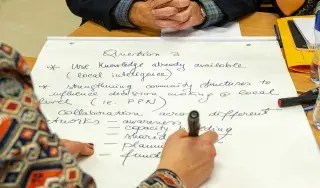 Question 3
* Use Knowledge already available
(local intelligence)
* strengthening community structures to
influence decision making @ local
level (ie: PPN)
Collaboration across different
networks – awareness
– capacity
– sharing
– planning